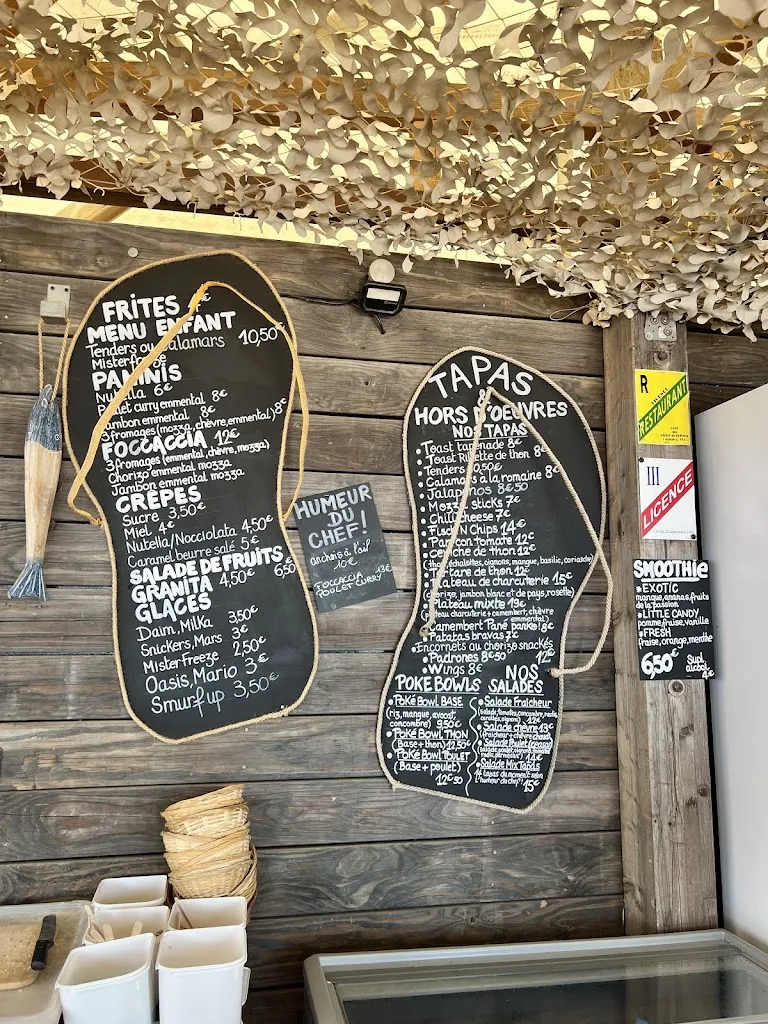 FRITES
MENU ENFANT
Tenders ou calamars 10,50€
Misterfreeze
PANINIS
Nutella 6€
Poulet curry emmental 8€
Jambon emmental 8€
3 fromages (mozza, chèvre, emmental) 8€
FOCCACCIA 12€
3 fromages (emmental, chèvre, mozza)
Chorizo emmental mozza
Jambon emmental mozza
CRÊPES
Sucre 3,50€
Miel 4€
Nutella/Nocciolata 4,50€
Caramel beurre salé 5€
SALADE DE FRUITS 6,50
GRANITA 4,50€
GLACES
Daim, Milka 3,50€
Snickers, Mars 3€
Mister Freeze 2,50€
Oasis, Mario 3€
Smurf up 3,50€
HUMEUR
DU
CHEF!
anchois à l'ail
10€
FOCCACCIA 13€
POULET CURRY
TAPAS
HORS D'OEUVRES
NOS TAPAS
Toast tapenade 8€
Toast Rillette de thon 8€
Tenders 10,50€
Calamars à la romaine 8€
Jalapenos 8€50
Mozza sticks 7€
Chili cheese 7€
Fisch N Chips 14€
Pan con tomate 12€
Ceviche de thon 12€
(thon, échalottes, oignons, mangue, basilic, coriandre)
Tartare de thon 12€
Plateau de charcuterie 15€
(chorizo, jambon blanc et de pays, rosette)
Plateau mixte 19€
(plateau charcuterie + camembert, chèvre
emmental)
Camembert Pané panko! 8€
Patatas bravas 7€
Encornets au chorizo snackés
12€
Padrones 8€50
Wings 8€
POKÉ BOWLS
Poké Bowl BASE
(riz, mangue, avocat,
concombre) 9,50€
Poké Bowl THON
(Base + thon) 12,50€
Poké Bowl POULET
(Base + poulet)
12€50
NOS
SALADES
Salade Fraicheur
(salade, tomates, concombre, radis,
carottes, oignons) 12€
Salade chèvre 13€
(fraicheur + chèvre chaud)
Salade Poulet
14€
Salade Mix Tapas
(4 tapas du moment selon
l'humeur du chef) 15€
R
RESTAURANT
III
LICENCE
SMOOTHIE
*EXOTIC
mangue, ananas, fruits
de la passion
*LITTLE CANDY
pomme, fraise, vanille
*FRESH
fraise, orange, menthe
6,50€ Supl
alcool
4€